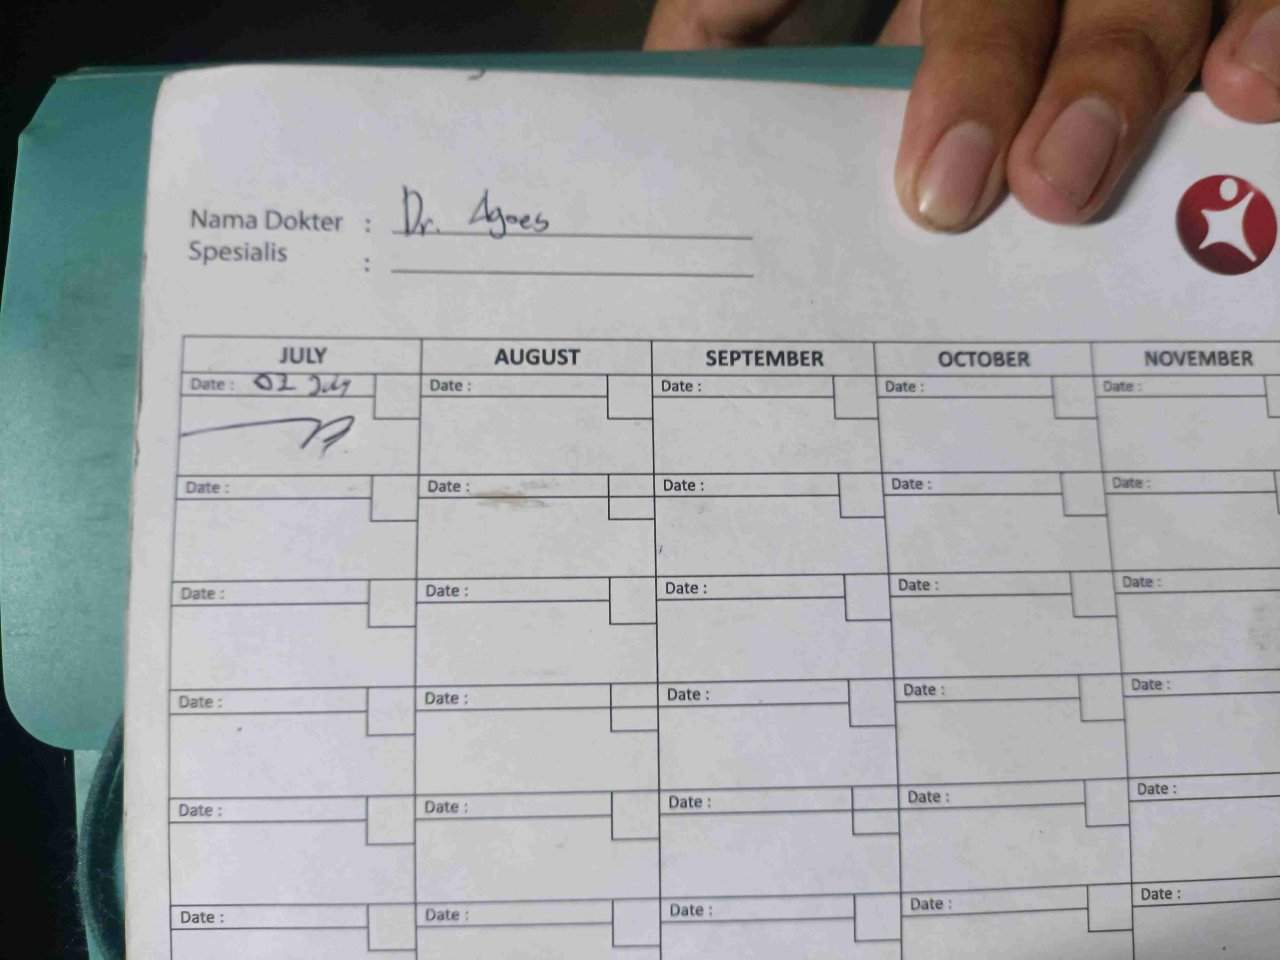 Nama Dokter : Dr. Agoes
Spesialis :
JULY AUGUST SEPTEMBER OCTOBER NOVEMBER
Date : 02 July Date : Date : Date : Date :
Date : Date : Date : Date : Date :
Date : Date : Date : Date : Date :
Date : Date : Date : Date : Date :
Date : Date : Date : Date : Date :
Date : Date : Date : Date : Date :